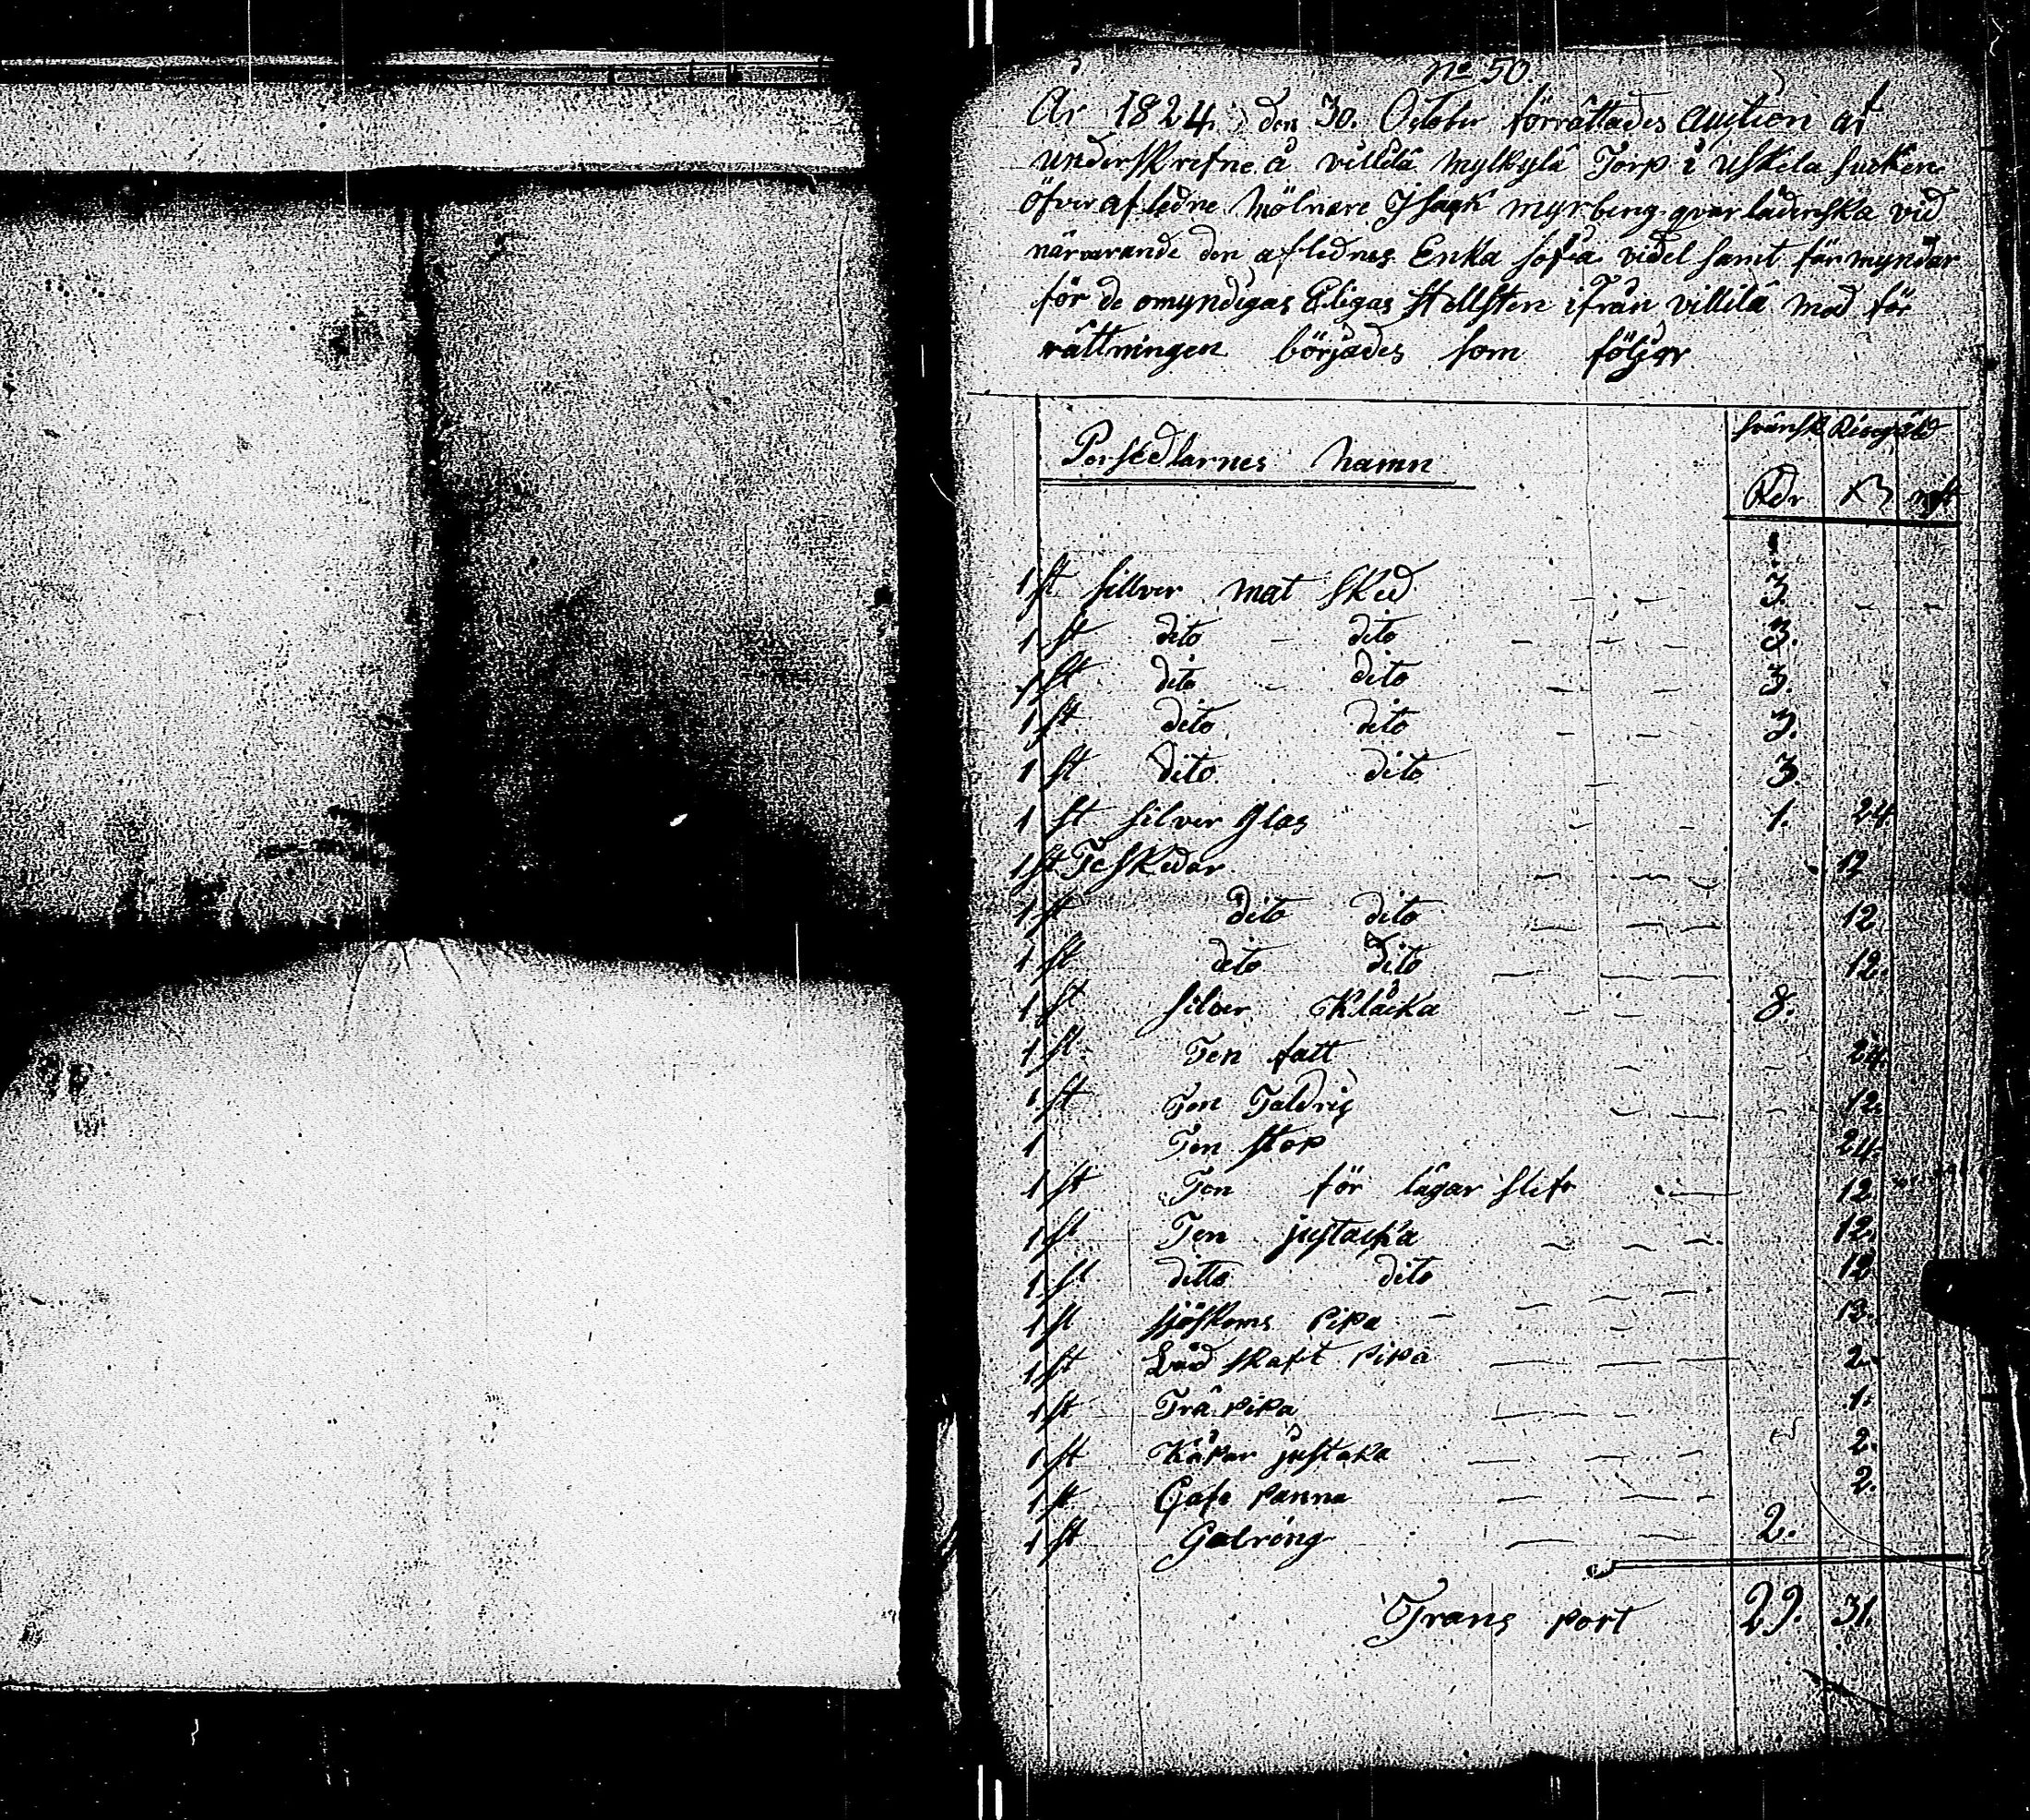 No 50.
År 1824 den 30. October förrättades Auction af
underskrefne å villilä mylkylä Torp i Uskela sucken
öfver afledne Mölnare Isaak myrberg qvarlådenska vid
närvarande den aflednes Enka Sofia videl samt förmyndar
för de omyndigas Eligas Hellsten ifrån villilä med för
rättningen börjades som följer
Persedlarnes Namn svensk Riksgäld
Rdr ß
1 st sillver mat sked 3.
1 st dito dito 3.
1 st dito dito 3.
1 st dito dito 3.
1 st dito dito 3
1 st silver glas 1. 24
1 st Teskedar 12
1 st dito dito 12
1 st dito dito 12.
1 st silver Klåcka 8.
1 st Ten fatt 24.
1 st Ten Taldrig 12.
1 Ten stop 24.
1 st Ten för lägar slef 12
1 st Ten justacka 12.
1 st ditto dito 12
1 st sjöskoms Pipa 12.
1 st skaft Pipa 2.
1 st Trä pipa 1.
1 st Kåpar justaka 2.
1 st Cafe panna 2.
1 st Gulring 2.
Trans port 29. 31